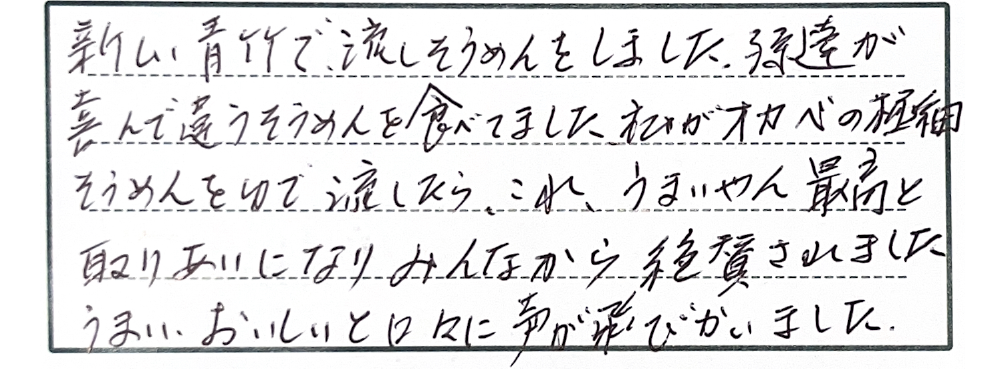 新しい青竹で、流しそうめんをしました。孫達が
喜んで違うそうめんを食べてました、私がオカベの極細
そうめんをゆで流したら、これ、うまいやん最高と
取りあいになりみんなから絶賛されました
うまい、おいしいと口々に声が飛びかいました。